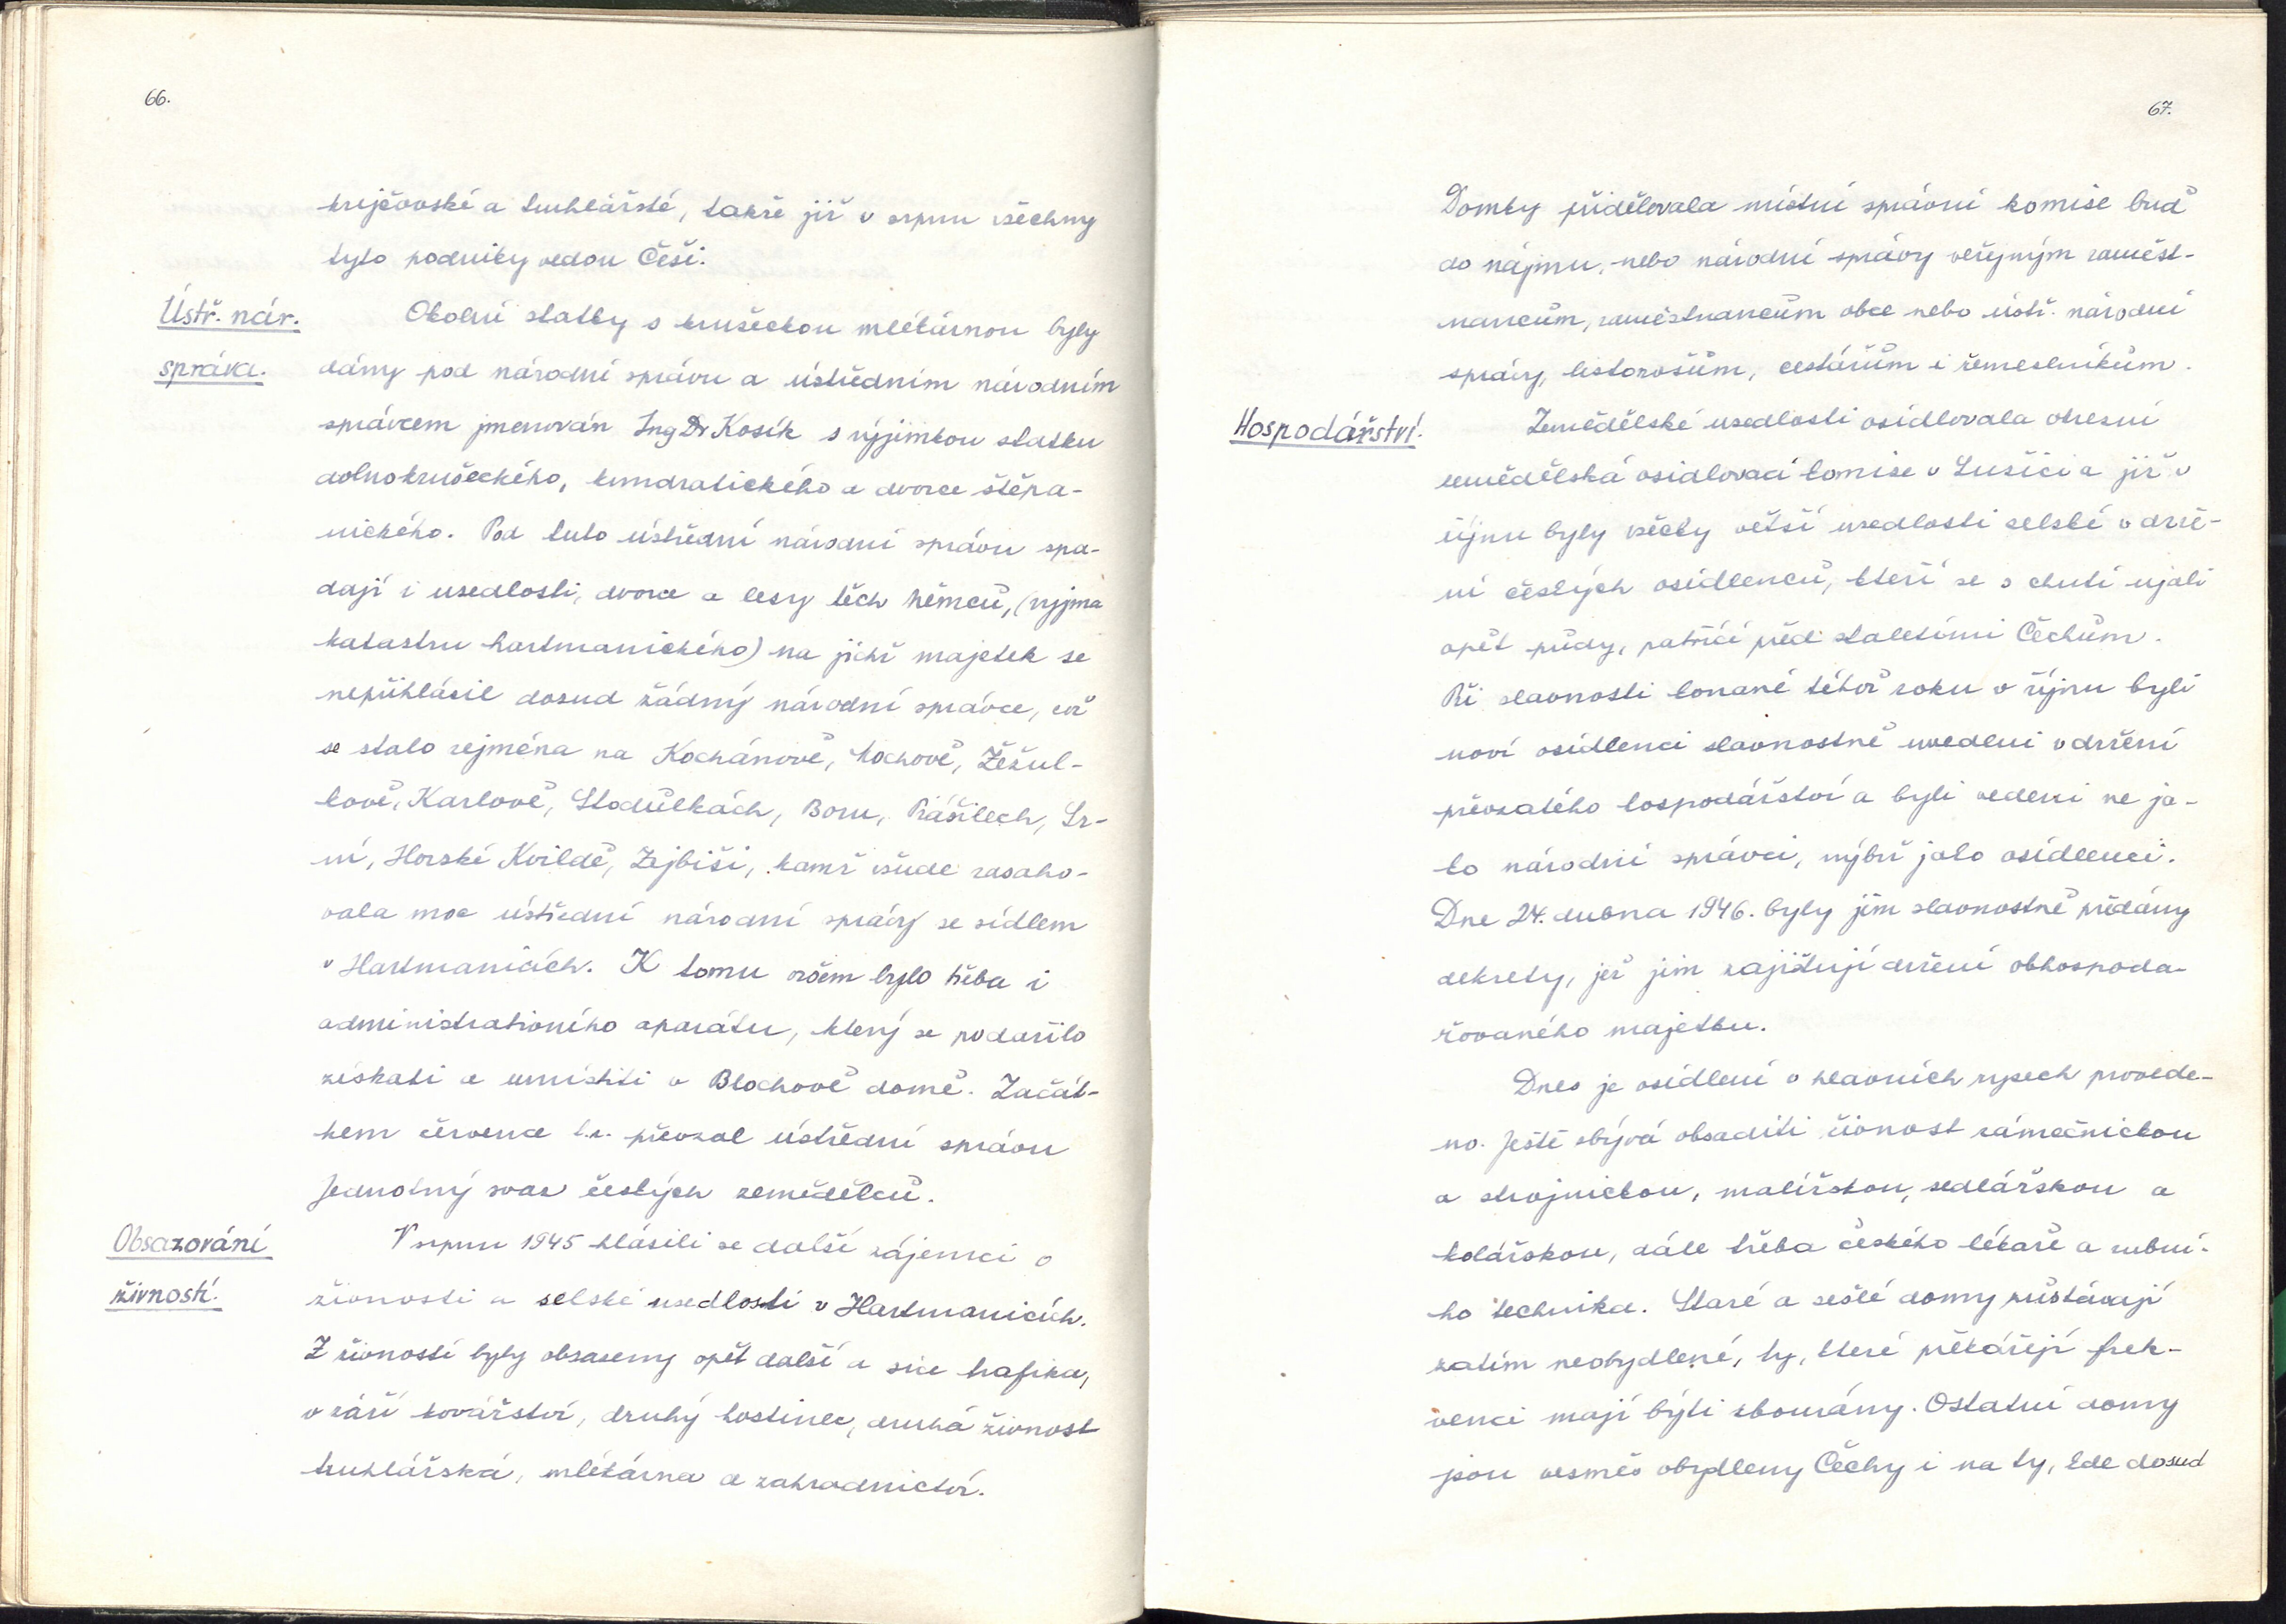 66.
krejčovské a truhlářské, takže již v srpnu všechny
tyto podniky vedou Češi.
Ústř. nár.
správa.
Okolní statky s krušeckou mlékárnou byly
dány pod národní správu a ústředním národním
správcem jmenován Ing Dr Kosík s výjimkou statku
dolnokrušeckého, kundratického a dvorce štěpa-
nického. Pod tuto ústřední národní správu spa-
dají i usedlosti, dvorce a lesy těch němců, (vyjma
katastru hartmanického) na jichž majetek se
nepřihlásil dosud žádný národní správce, což
se stalo zejména na Kochánově, Mochově, Žežul-
kově, Karlově, Stodůlkách, Boru, Prášilech, Sr-
ní, Horské Kvildě, Zejbiši, kamž všude zasaho-
vala moc ústřední národní správy se sídlem
v Hartmanicích. K tomu ovšem bylo třeba i
administrativního aparátu, který se podařilo
získati a umístiti v Blochově domě. Začát-
kem července t.r. převzal ústřední správu
Jednotný svaz českých zemědělců.
Obsazování
živností.
V srpnu 1945 hlásili se další zájemci o
živnosti a selské usedlosti v Hartmanicích.
Z živností byly obsazeny opět další a sice trafika,
v září kovářství, druhý hostinec, druhá živnost
truhlářská, mlékárna a zahradnictví.
67.
Domky přidělovala místní správní komise buď
do nájmu, nebo národní správy veřejným zaměst-
nancům, zaměstnancům obce nebo ústř. národní
správy, listonošům, cestářům i řemeslníkům.
Hospodářství.
Zemědělské usedlosti osidlovala okresní
zemědělská osidlovací komise v Sušici a již v
říjnu byly všecky větší usedlosti selské v drže-
ní českých osídlenců, kteří se s chutí ujali
opět půdy, patřící před staletími Čechům.
Při slavnosti konané téhož roku v říjnu byli
noví osídlenci slavnostně uvedeni v držení
převzatého hospodářství a byli vedeni ne ja-
ko národní správci, nýbrž jako osídlenci.
Dne 24. dubna 1946. byly jim slavnostně předány
dekrety, jež jim zajišťují držení obhospoda-
řovaného majetku.
Dnes je osídlení v hlavních rysech provede-
no. Ještě zbývá obsaditi živnost zámečnickou
a strojnickou, malířskou, sedlářskou a
kolářskou, dále třeba českého lékaře a zubní-
ho technika. Staré a sešlé domy zůstávají
zatím neobydlené, ty, které překážejí frek-
venci mají býti zbourány. Ostatní domy
jsou vesměs obydleny Čechy i na ty, kde dosud